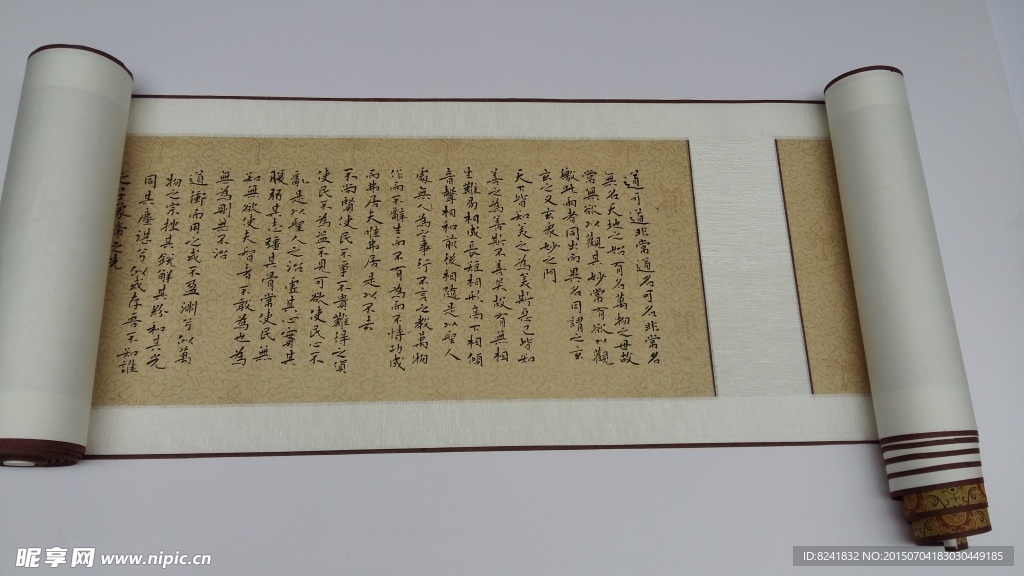 道可道非常道名可名非常名
無名天地之始有名萬物之母故
常無欲以觀其妙常有欲以觀
徼此兩者同出而異名同謂之玄
玄之又玄衆妙之門
天下皆知美之為美斯惡已皆知
善之為善斯不善矣故有無相
生難易相成長短相形高下相傾
音聲相和前後相隨是以聖人
處無為之事行不言之教萬物
作而不辭生而不有為而不恃功成
而弗居夫唯弗居是以不去
不尚賢使民不爭不貴難得之貨
使民不為盜不見可欲使民心不
亂是以聖人之治虛其心實其
腹弱其志強其骨常使民無
知無欲使夫智者不敢為也為
無為則無不治
道衝而用之或不盈淵兮似萬
物之宗挫其銳解其紛和其光
同其塵湛兮似或存吾不知誰
之子象帝之先
昵享网 www.nipic.cn
ID:8241832 NO:20150704183030449185